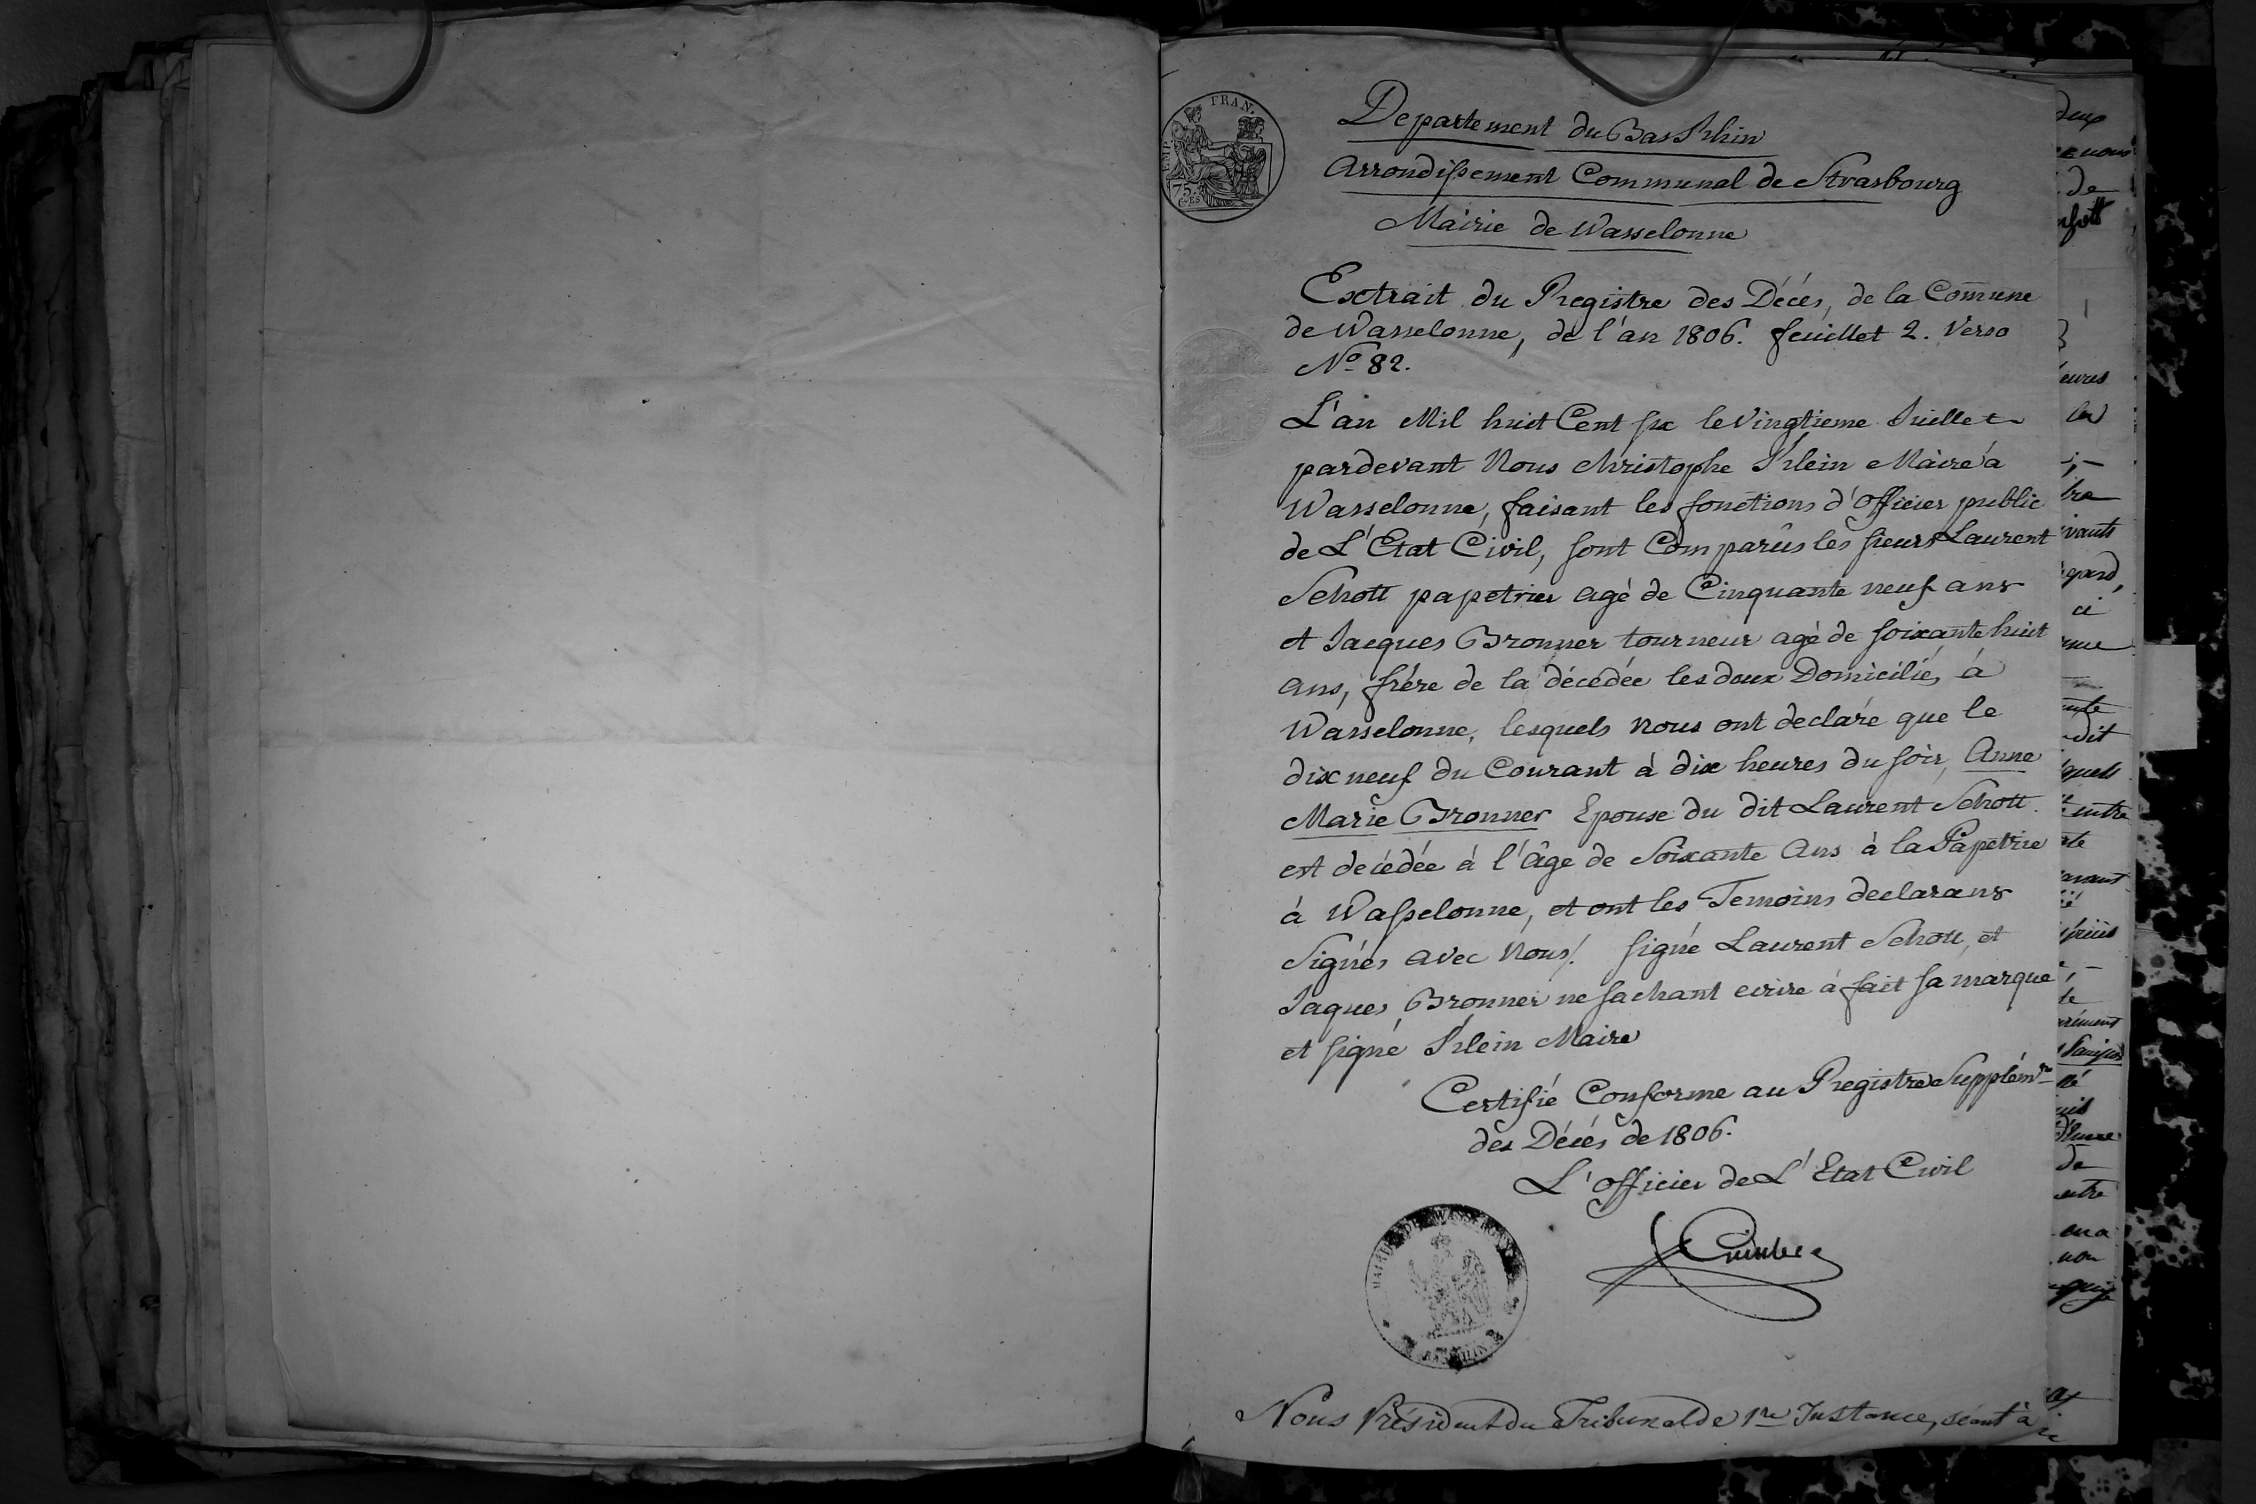 EMP. FRAN.
75.
C.ES
Departement du Bas Rhin
Arrondissement Communal de Strasbourg
Mairie de Wasselonne
Extrait du Registre des Décés, de la Com̄une
de Wasselonne, de l'an 1806. feuillet 2. Verso
No 82.
L'an Mil huit Cent six le Vingtieme Juillet
pardevant Nous Christophe Klein Maire à
Wasselonne, faisant les fonctions d'officier public
de L'Etat Civil, sont Comparûs les sieurs Laurent
Schott papetrier agé de Cinquante neuf ans
et Jacques Bronner tourneur agé de soixante huit
ans, frére de la décédée les deux Domiciliés à
Wasselonne, lesquels nous ont declaré que le
dix neuf du Courant à dix heures du soir, Anne
Marie Bronner Epouse du dit Laurent Schott
est decédée à l'âge de Soixante Ans à la Papetrie
à Wasselonne, et ont les Temoins declarans
Signés avec Nous/. signé Laurent Schott, et
Jaques Bronner ne sachant ecrire à fait sa marque
et signé Klein Maire
Certifié Conforme au Registre Supplémre
des Décés de 1806.
L'officier de L'Etat Civil
MAIRIE DE WASSELONNE
BAS RHIN
Nous Président du Tribunal de 1re Instance, séant à